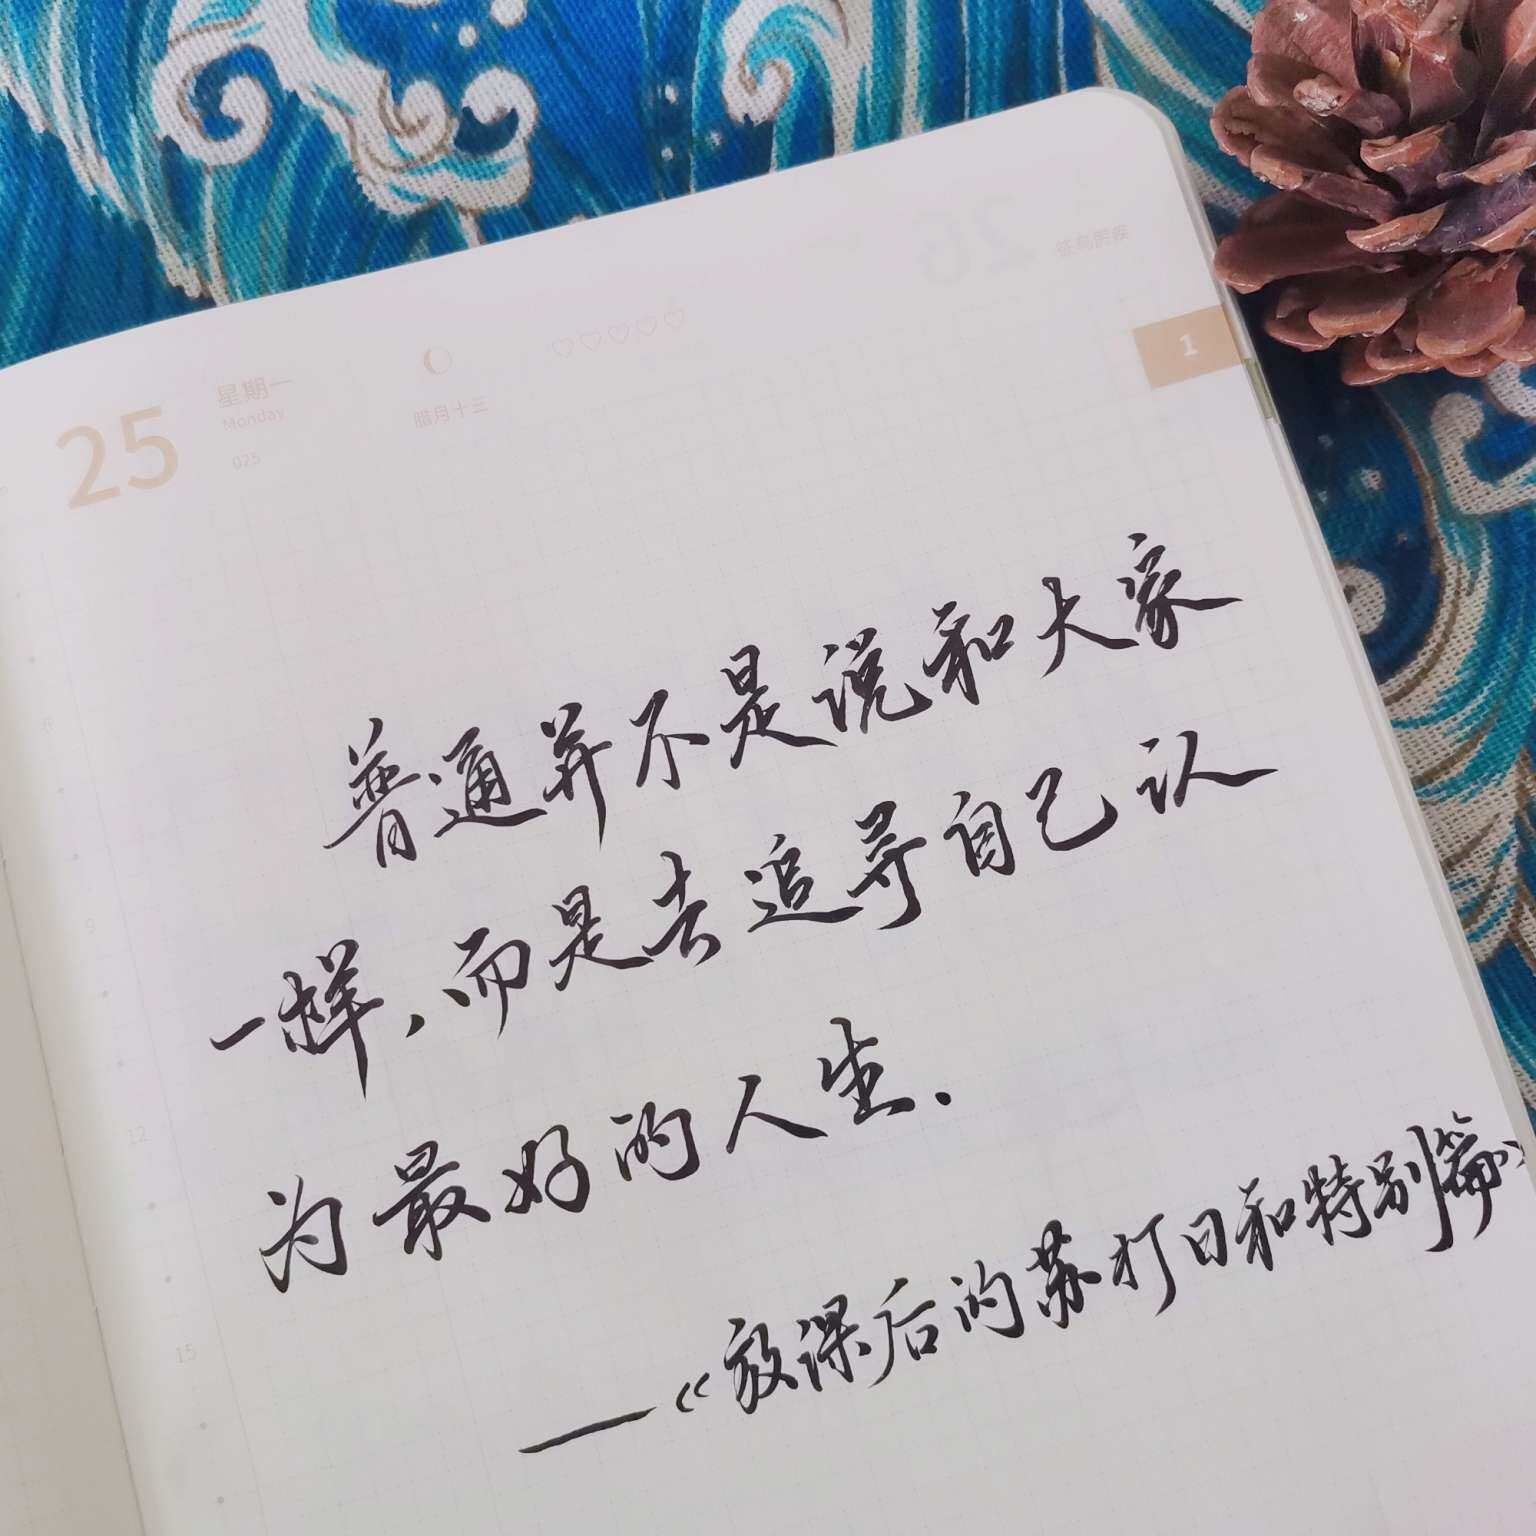 25
星期一
Monday
025
腊月十三
1
普通并不是说和大家
一样，而是去追寻自己认
为最好的人生.
——《放课后的苏打日和特别篇》
9
12
15